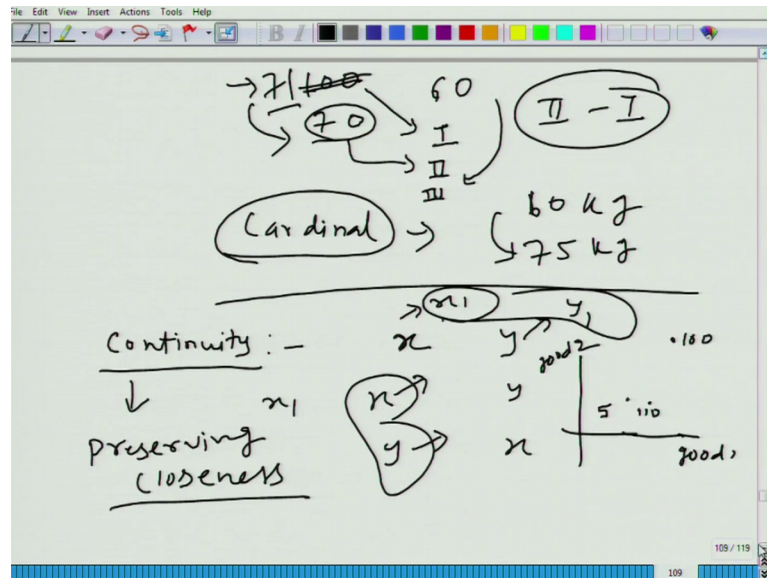 File Edit View Insert Actions Tools Help
B I
→ 71 100 60
70 I II - I
II
III
Cardinal → 60 kg
75 kg
x1 y1
Continuity :- x y
good 2 .100
x1 x y 5 .110
Preserving y x good 1
Closeness
109 / 119
109